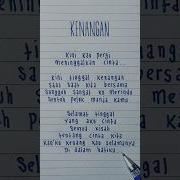 KENANGAN
Kini Kau Pergi
Meninggalkan Cinta...
Kini tinggal Kenangan
Saat Saat Kita bersama
Sungguh Sangat Ku Merindu
Sentuh Peluk Manja Kamu
Selamat tinggal
Yang aku Cinta
Semua Kisah
Tentang Cinta Kita
Kan'Ku Kenang Kau Selamanya
Di dalam Hatiku